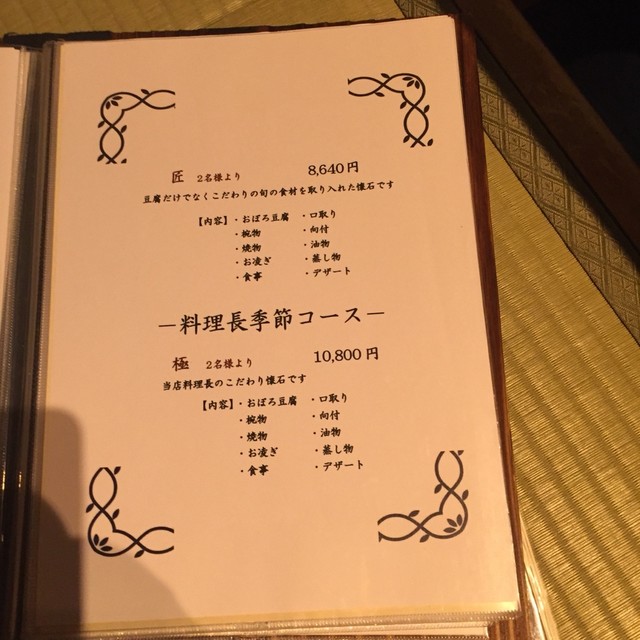 匠 2名様より 8,640円
豆腐だけでなくこだわりの旬の食材を取り入れた懐石です
【内容】・おぼろ豆腐 ・口取り
・椀物 ・向付
・焼物 ・油物
・お凌ぎ ・蒸し物
・食事 ・デザート
―料理長季節コース―
極 2名様より 10,800円
当店料理長のこだわり懐石です
【内容】・おぼろ豆腐 ・口取り
・椀物 ・向付
・焼物 ・油物
・お凌ぎ ・蒸し物
・食事 ・デザート